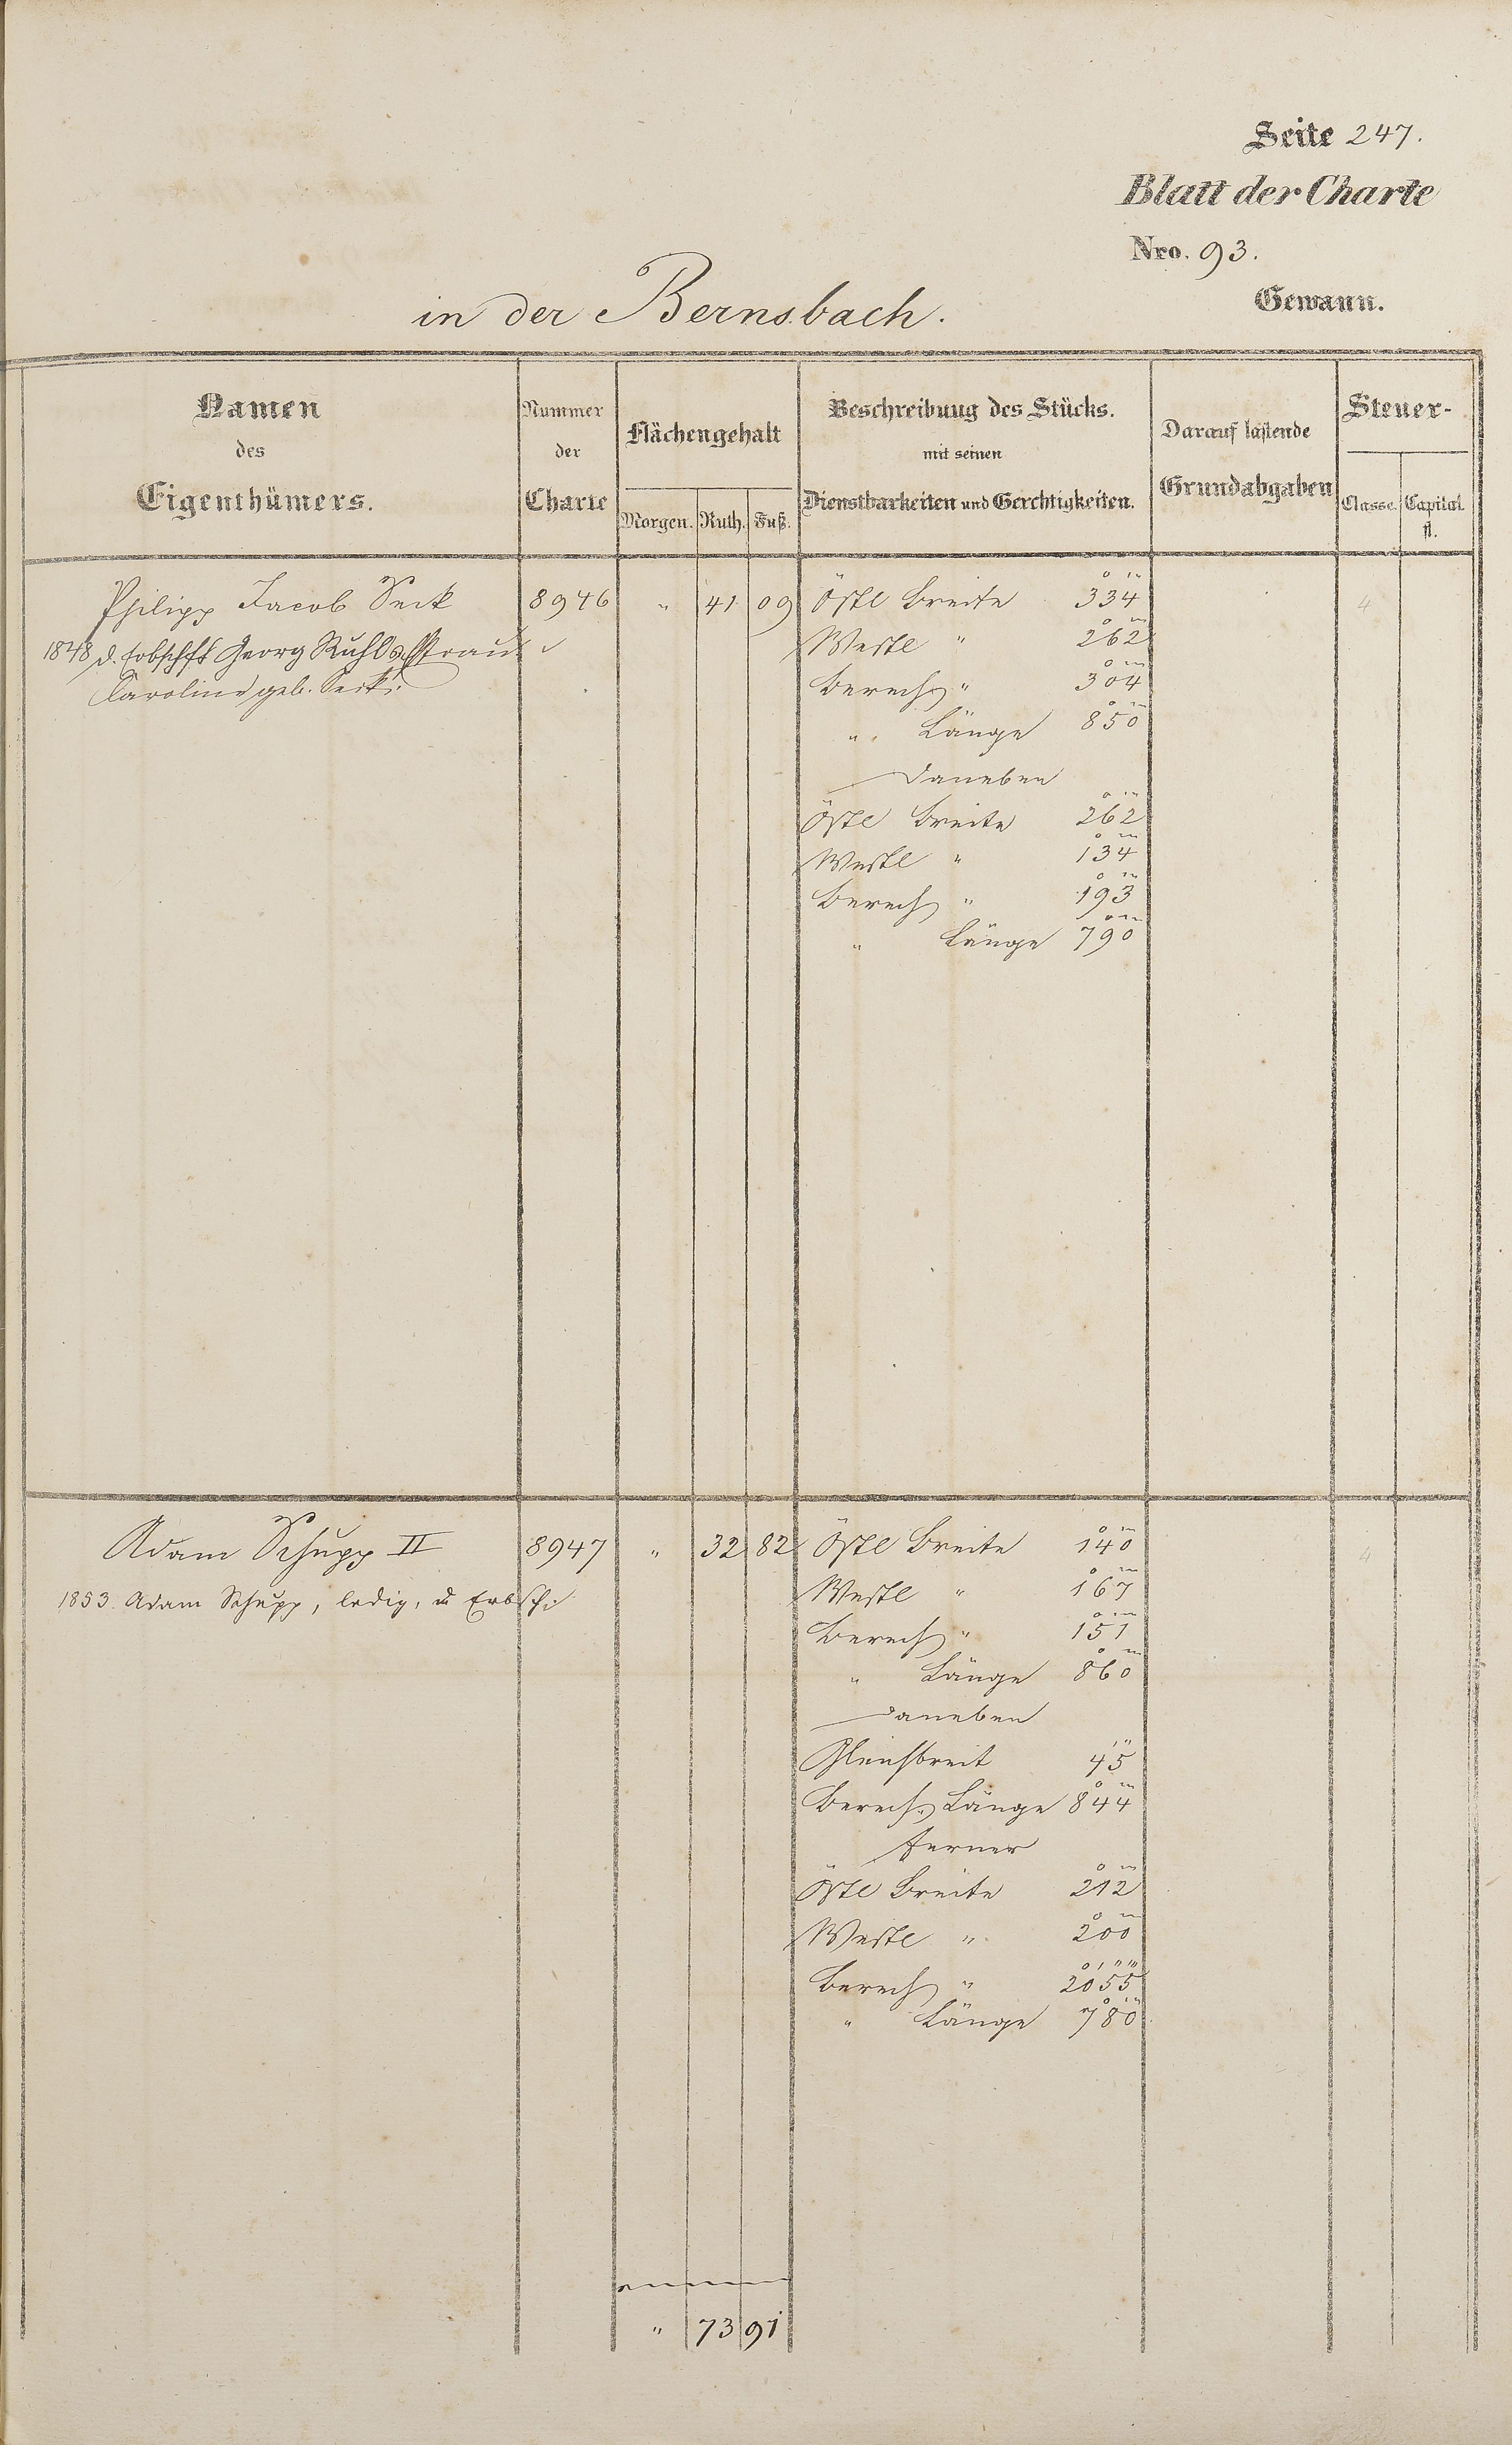 Seite 247.
Blatt der Charte
Nro. 93.
in der Bernsbach. Gewann.
Namen des Eigenthümers.
Nummer der Charte
Flächengehalt
Morgen. Ruth. Fuß.
Beschreibung des Stücks.
mit seinen
Dienstbarkeiten und Gerchtigkeiten.
Darauf lastende
Grundabgaben
Steuer-
Classe. Capital.
fl.
Philipp Jacob Seck 8946 " 41 09 Östl Breite 334 4
1848 d. Erbschft Georg Ruhl's Frau Westl " 262
Caroline geb. Seck. Berech " 304
" Länge 850
Daneben
Östl Breite 262
Westl " 134
Berech " 193
" Länge 790
Adam Schupp II 8947 " 32 82 Östl Breite 140 4
1853. Adam Schupp, ledig, d Erbsch. Westl " 167
Berech " 151
" Länge 860
Daneben
Gleichbreit 45
Berech. Länge 844
ferner
Östl Breite 212
Westl " 200
Berech " 2055
" Länge 780
" 73 91